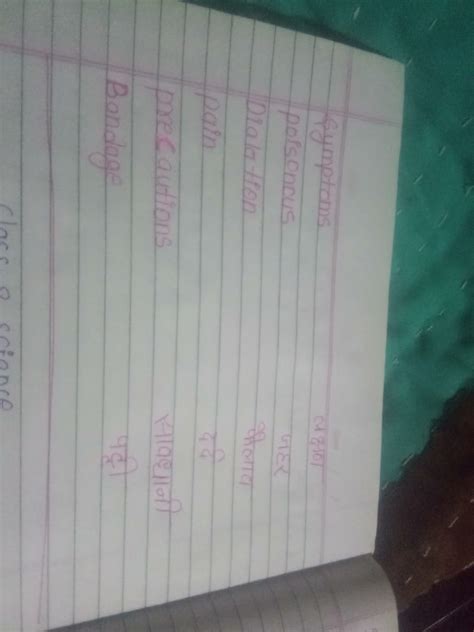 Symptoms लक्षण
poisonous जहर
Dialation फैलाव
pain दर्द
precautions सावधानी
Bandage पट्टी
class 9 science